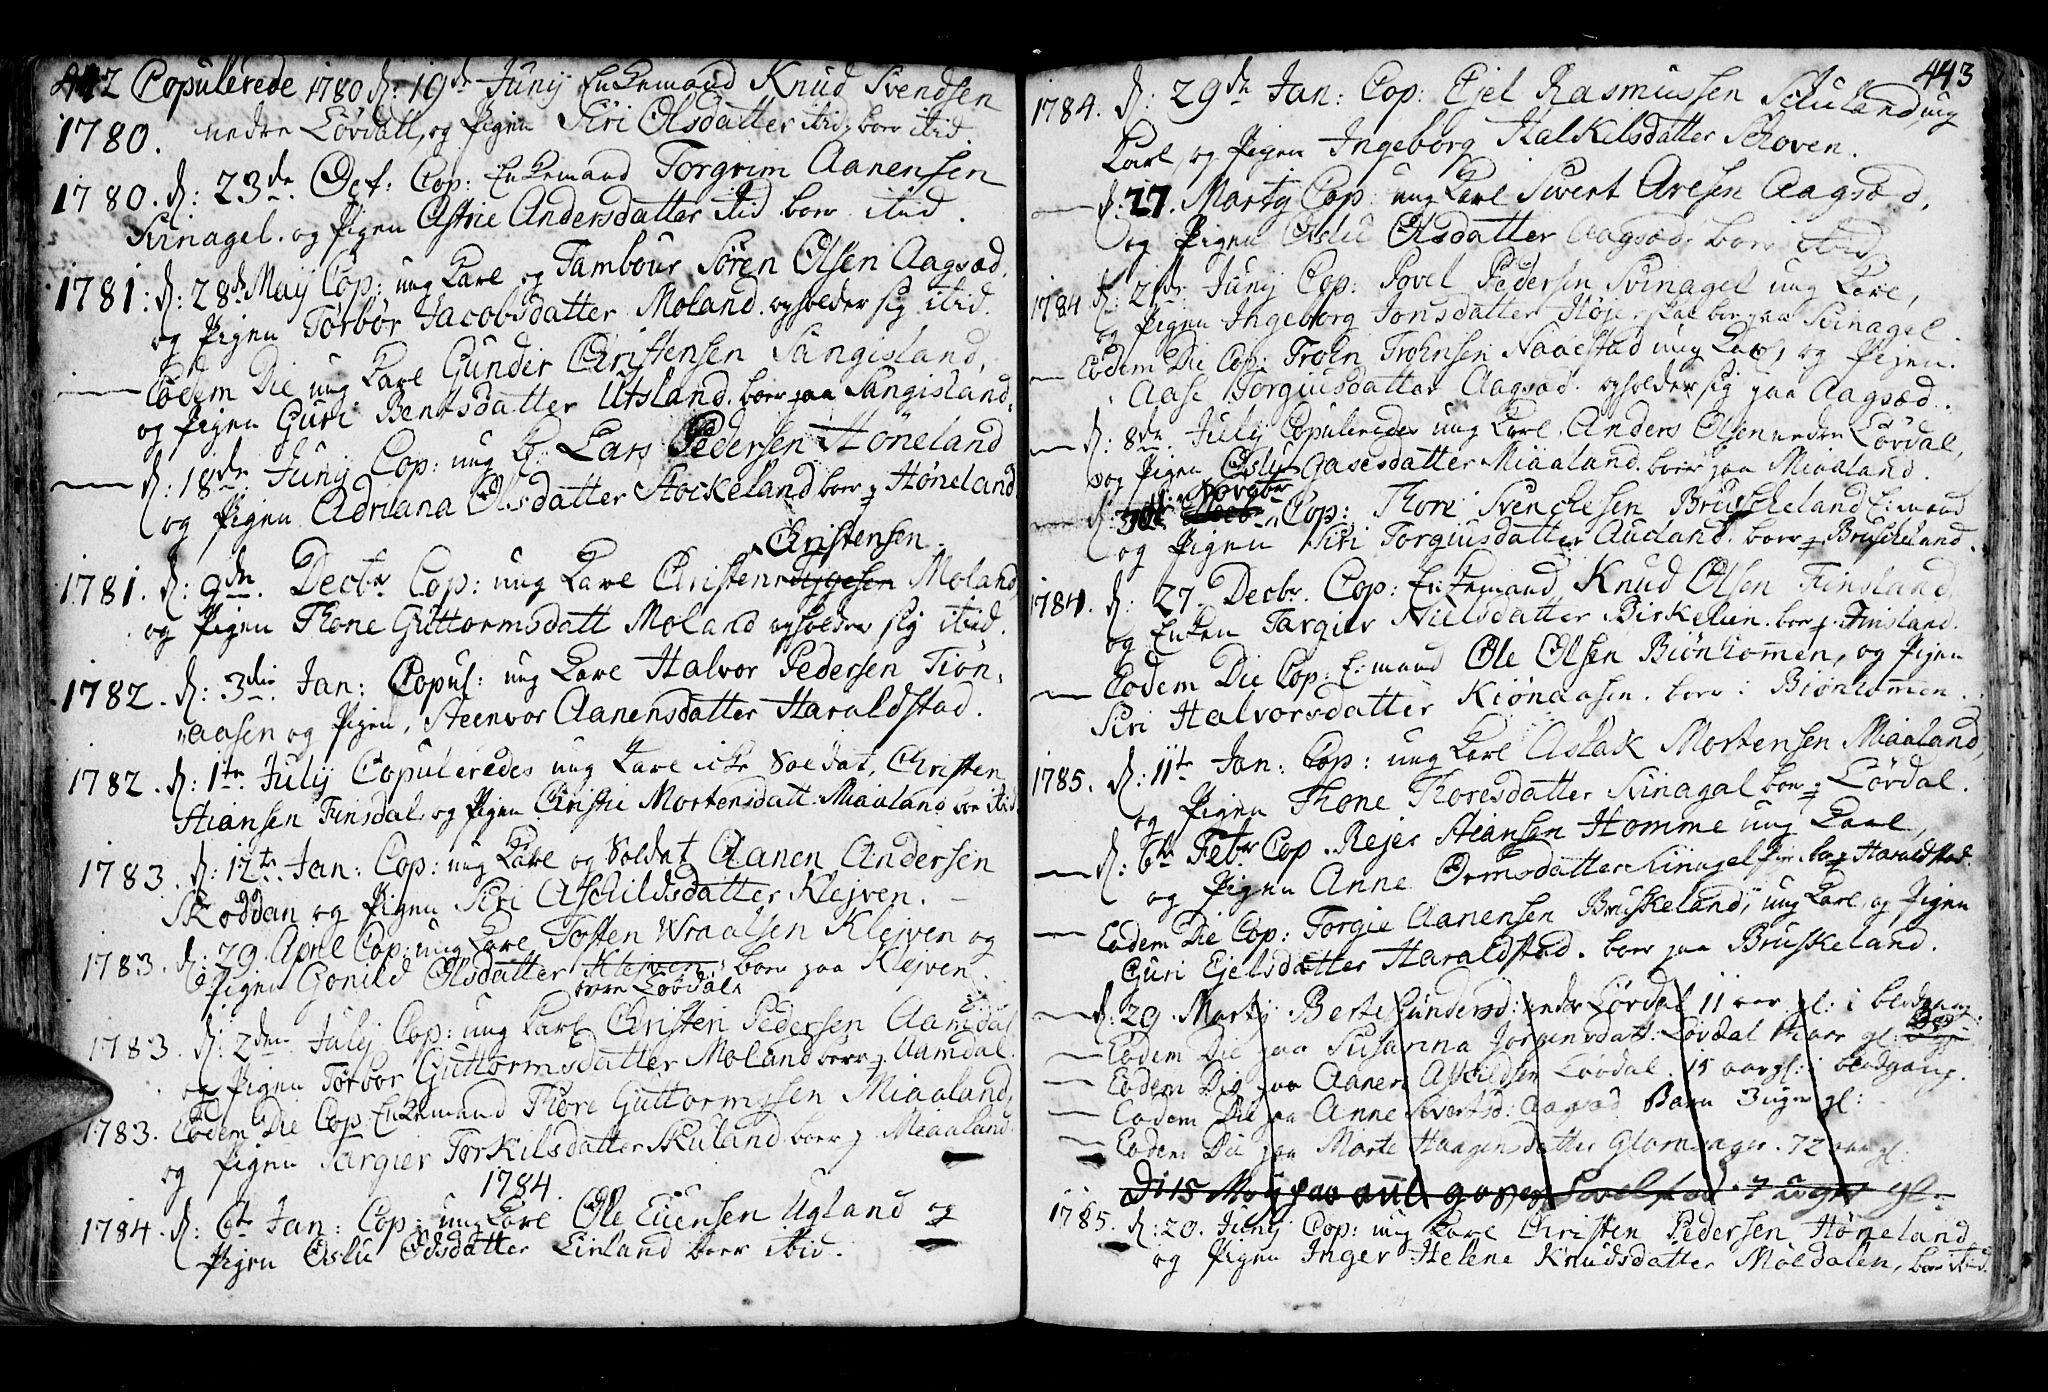 442 Copulerede 1780 d: 19de Junij Enkemand Knud Svendsen
1780. nedre Løvdall, og Pigen Siri Olsdatter ibid, boer ibid.
1780. d: 23de Oct: Cop: Enkemand Torgrim Aanensen
Svinagel. og Pigen Astrie Andersdatter ibid boer ibid.
1781: d: 28de Maij Cop: ung Karl og Tambour Søren Olsen Aagsød,
og Pigen Torbor Jacobsdatter Moland. opholder sig ibid.
Eodem Die ung Karl Gunder Christensen Sangisland,
og Pigen Guri Bentsdatter Utsland. boer paa Sangisland.
d: 18de Junij Cop: ung K: Lars Pedersen Høneland
og Pigen Adriana Olsdatter Stockeland boer p Høneland
Christensen
1781. d: 9de. Decbr Cop: ung Karl Christen Moland
og Pigen Thone Guttormsdatt Moland opholder sig ibid.
1782. d: 3die Jan: Copul: ung Karl Halvor Pedersen Tiøn,
aasen og Pigen, Steenvor Aanensdatter Haraldstad.
1782. d: 1te Julij Copuleredes ung Karl icke Soldat, Christen
Stiansen Finsdal, og Pigen Christi Mortensdatt Miaaland boe ibid
1783. d: 12te Jan: Cop: ung Karl og Soldat Aanen Andersen
Skoddan og Pigen Siri Aschildsdatter Klejven.
1783. d: 29. April Cop: ung Karl Tosten Wraalsen Klejven og
Pigen Gonild Olsdatter Klejven, boer paa Klejven.
Løvdal
1783. d: 2den Julij Cop: ung Karl Christen Pedersen Aamdal
og Pigen Torbor Guttormsdatter Moland boer p. Aamdal.
1783. Eodem Die Cop Enkemand Thore Guttormssen Miaaland,
og Pigen Targier Torkilsdatter Skuland boer p Miaaland.
1784.
1784. d: 6te Jan: Cop: ung Karl Ole Evensen Ugland og
Pigen Oslu Odsdatter Einland boer ibid.
443
1784. d: 29de Jan: Cop: Ejel Rasmussen Skuland, ung
Karl, og Pigen Ingeborg Halkelsdatter Schoven.
d: 27. Martij Cop: ung Karl Sivert Aresen Aagsød,
og Pigen Oslu Olsdatter Aagsød, boer ibid
1784 d: 21de Junij Cop: Povel Pedersen Svinagel ung Karl,
og Pigen Ingeborg Jonsdatter Høje, skal boe paa Svinagel.
Eodem Die Cop: Trohn Trohnsen Naaestad ung Karl, og Pigen.
Aase Torgiusdatter Aagsød. opholder sig paa Aagsød.
d: 8de. Julij Copuleredes ung Karl. Anders Olsen nedre Løvdal,
og Pigen Oslu Aasesdatter Miaaland. boer paa Miaaland.
Novbr
d: 30te Cop: Thore Svenchesen Bruskeland E:mand
og Pigen Siri Torgiusdatter Audland. boer p Bruskeland.
1784. d: 27. Decbr. Cop: Enkemand, Knud Olsen Finsland,
og Enken Targier Nielsdatter Birkelien. boer p. Finsland.
Eodem Die Cop: E:mand Ole Olsen Biønkommen, og Pigen
Siri Halvorsdatter Kiønaasen. boer i Biønkommen.
1785. d: 11te Jan: Cop: ung Karl Aslak Mortensen Miaaland,
og Pigen Thone Thoresdatter Svinagal boer p Løvdal.
d: 6te Febr Cop. Rejer Stiansen Homme ung Karl,
og Pigen Anne Ormsdatter Svinagel boe p Haraldstad.
Eodem Die Cop: Torgie Aanensen Bruskeland, ung Karl, og Pigen
Guri Ejelsdatter Haraldstad. boer paa Bruskeland.
d: 29. Martij Berte Gundersd: nedr Løvdal 11 aar gl: i
Eodem Die paa Susanna Jorgensdatt: Løvdal aar gl:
Eodem Die paa Aanen Aschildsen Løvdal. 15 aar gl: i
Eodem Die paa Anne Sivertsd: Aagsød Barn 3 uger gl:
Eodem Die paa Marte Haagensdatter Glomsager. 72 aar gl:
Di 15 Maij paa 7 uger gl:
1785. d: 20. Junij Cop: ung Karl Christen Pedersen Høneland
og Pigen Inger Helene Knudsdatter Moldalen, boer ibid.